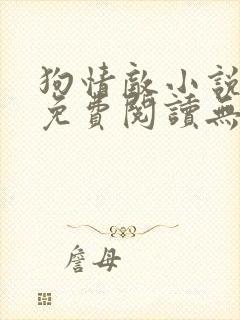 狗情敵小說
免費閱讀無
詹母